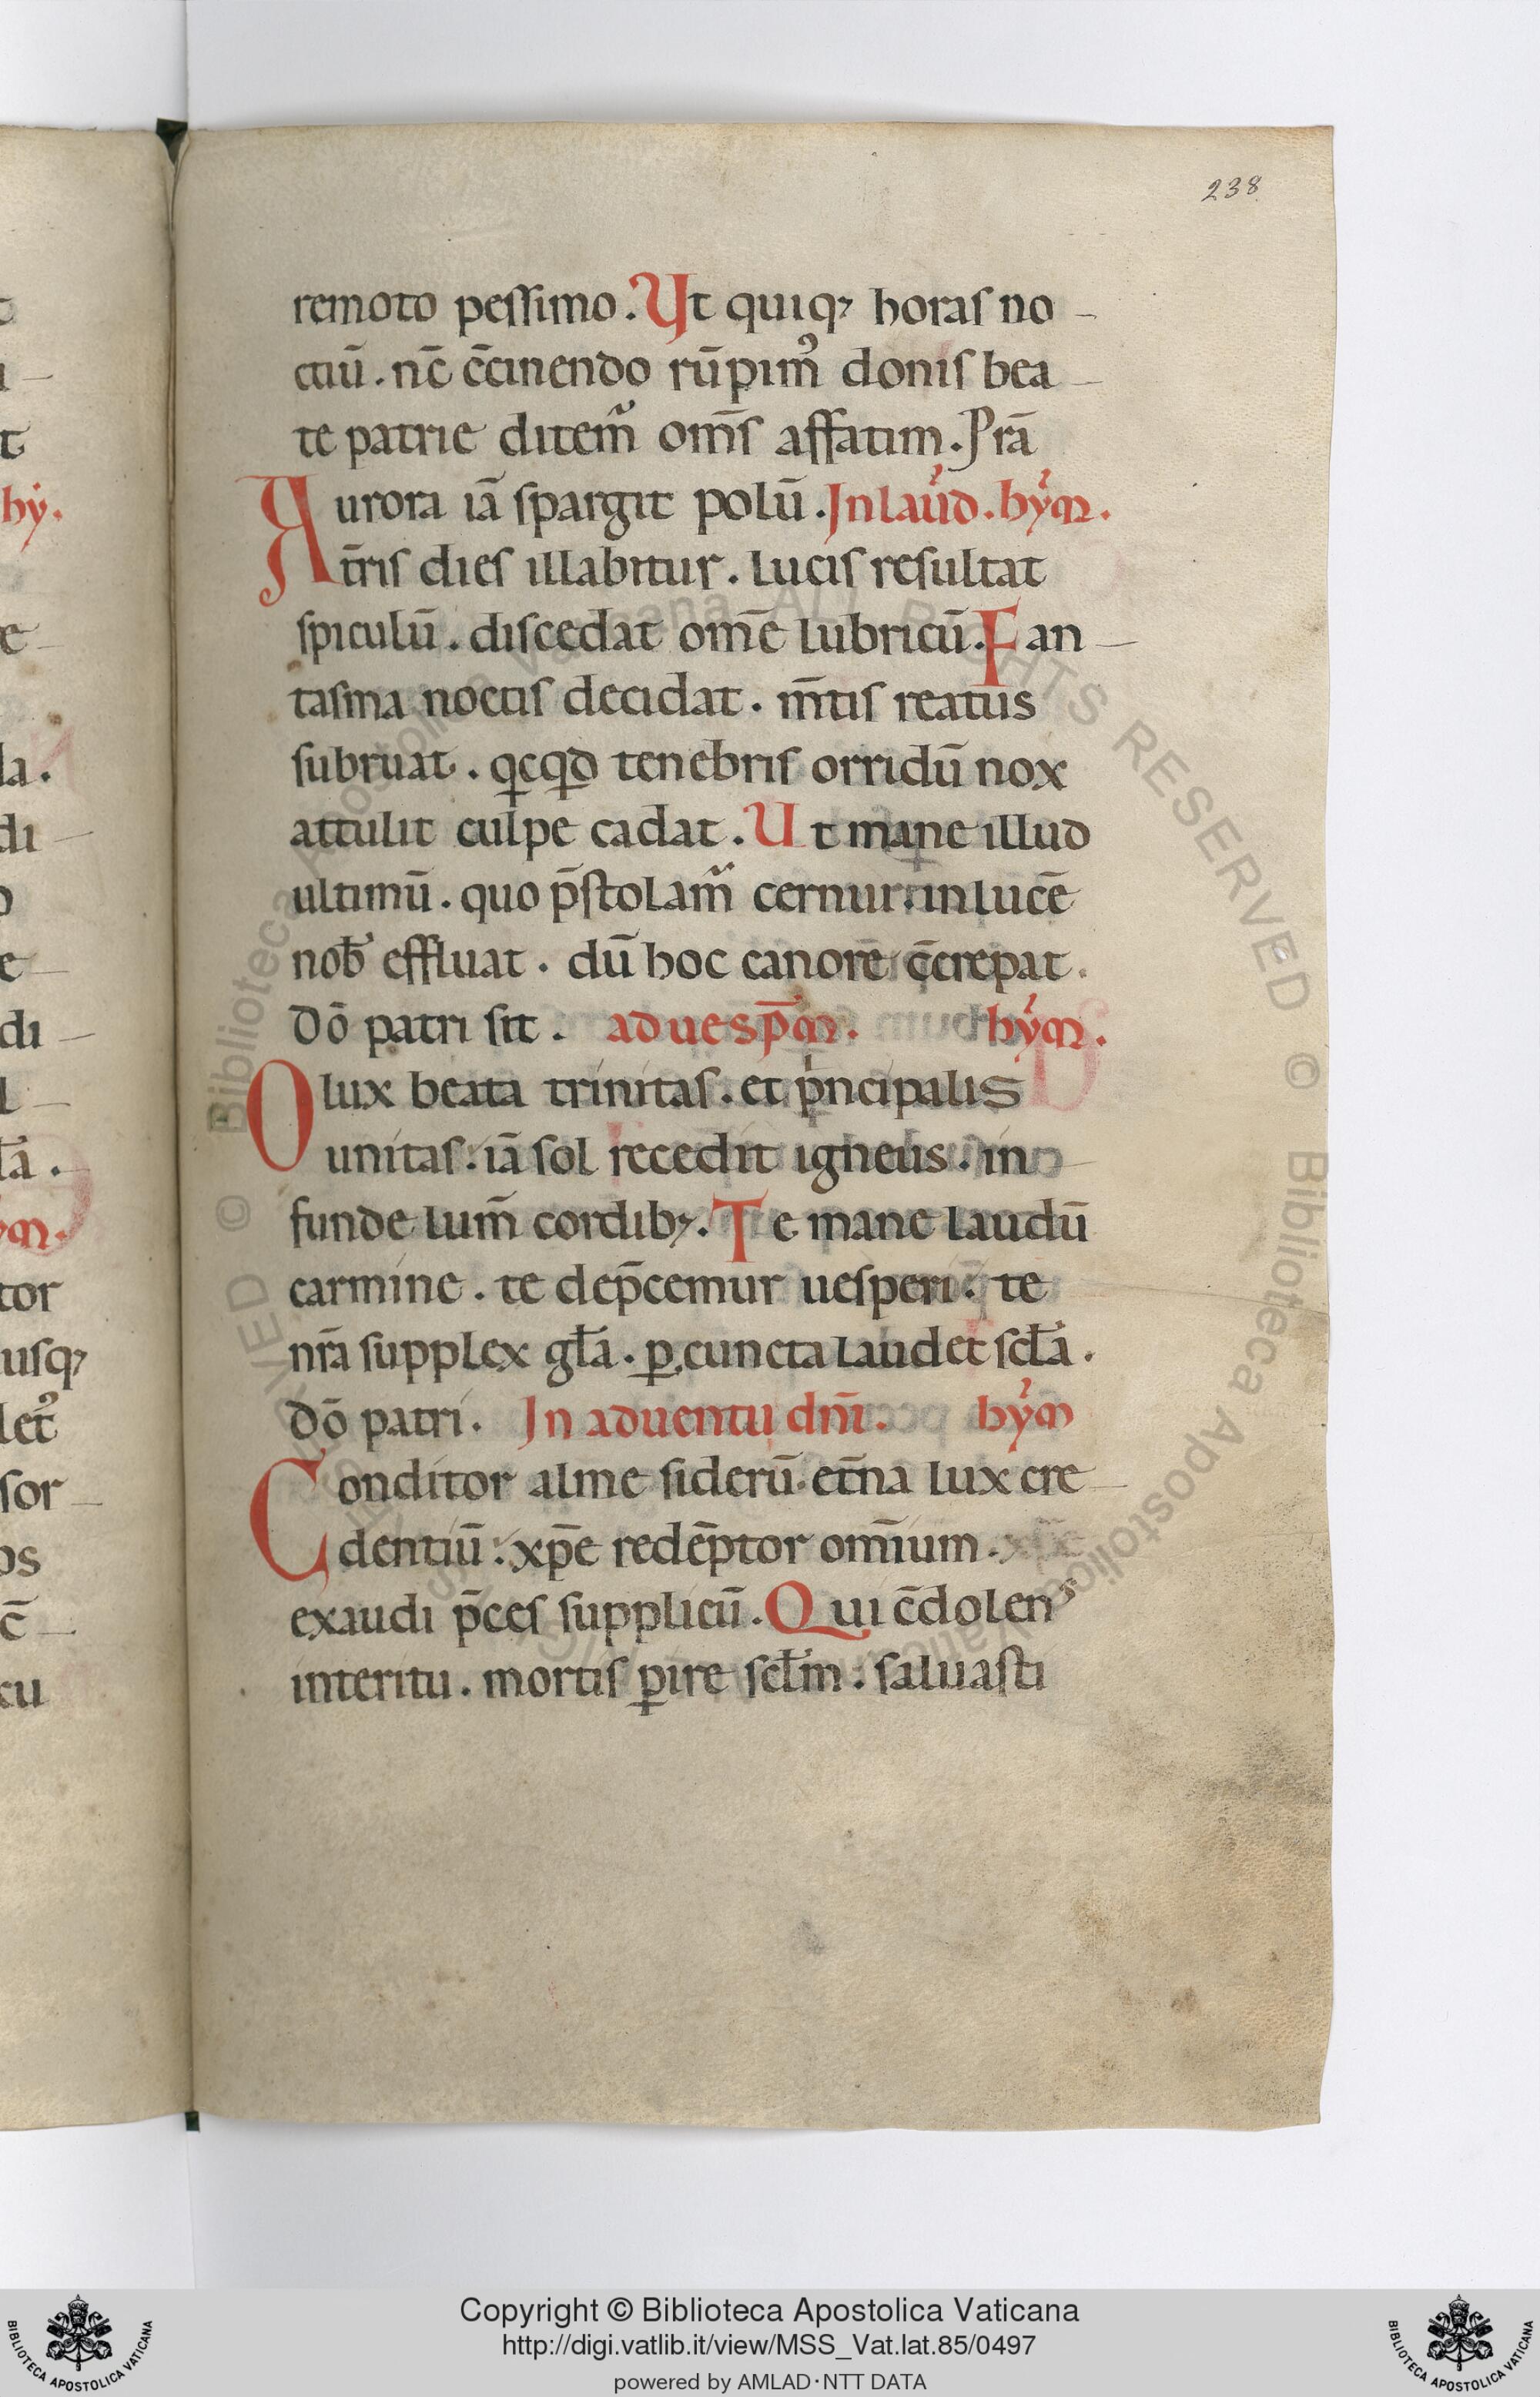 238
remoto pessimo. Ut quiq; horas no-
ctiū. nc̄ c̄cinendo rūpimꝰ donis bea-
te patrie ditem̃ om̄s affatim. Prā
Aurora iā spargit polū. In laud. hym.
t̄ris dies illabitur. lucis resultat
spiculū. discedat om̄e lubricū. Fan-
tasma noctis decidat. m̄tis reatus
subruat. qcqd tenebris orridū nox
attulit culpe cadat. Ut mane illud
ultimū. quo p̄stolam̃ cernui. in lucē
nob̄ effluat. dū hoc canore c̄crepat.
Dō patri sit. ad uesp̄m. hym.
O lux beata trinitas. et pncipalis
unitas: iā sol recedit igneus. in-
funde lum̄ cordib;. Te mane laudū
carmine. te dep̄cemur uesperi: te
nr̄a supplex gl̄a. ꝑ cuncta laudet scl̄a.
Dō patri. In aduentu dn̄i. hym
Conditor alme siderū. et̄na lux cre-
dentiū: xp̄e redēptor om̄ium.
exaudi p̄ces supplicū. Qui c̄dolenˢ
interitu. mortis ꝑire scl̄m: saluasti
Copyright © Biblioteca Apostolica Vaticana
http://digi.vatlib.it/view/MSS_Vat.lat.85/0497
powered by AMLAD·NTT DATA